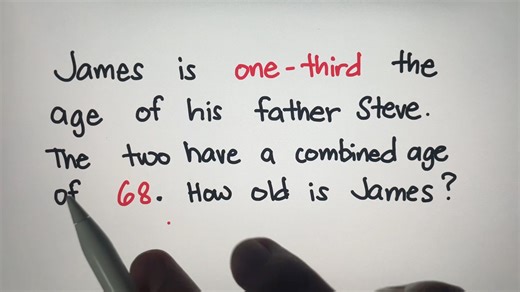 James is one-third the
age of his father Steve.
The two have a combined age
of 68. How old is James?